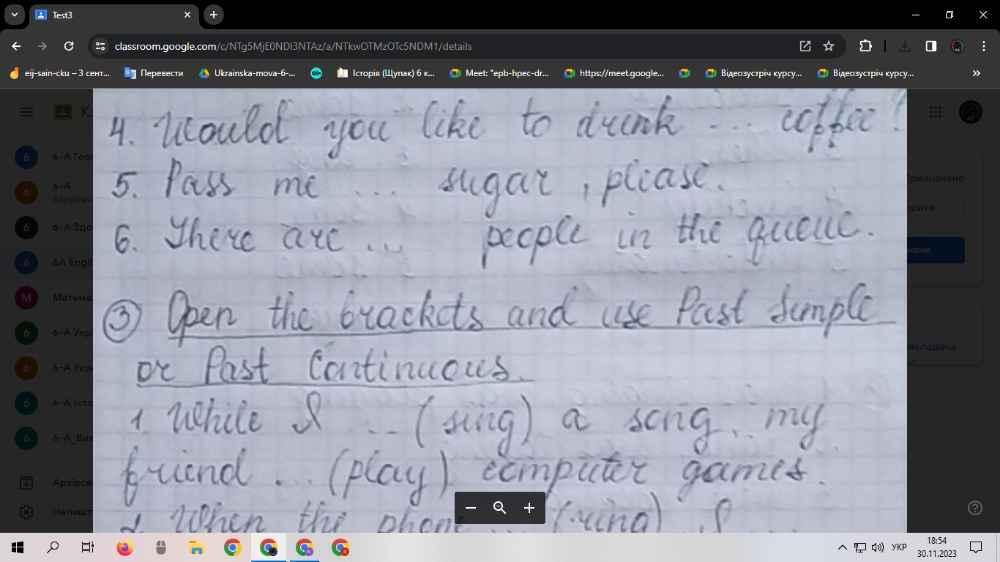 Test3
classroom.google.com/c/NTg5MjE0NDI3NTAz/a/NTkwOTMzOTc5NDM1/details
eij-sain-cku – 3 сент...
Перевести
Ukrainska-mova-6-...
Історія (Щупак) 6 к...
Meet: "epb-hpec-dr...
https://meet.google...
Відеозустріч курсу...
Відеозустріч курсу...
4. Would you like to drink ... coffee?
5. Pass me ... sugar, please.
6. There are ... people in the queue.
③ Open the brackets and use Past Simple
or Past Continuous.
1. While I ... (sing) a song, my
friend ... (play) computer games.
2. When the phone ... (ring) I ...
6-А
6-А Здо
6А Engli
Матема
6-А Укр
6-А Істо
6-А_Вик
Архівов
Налашт
УКР
18:54
30.11.2023